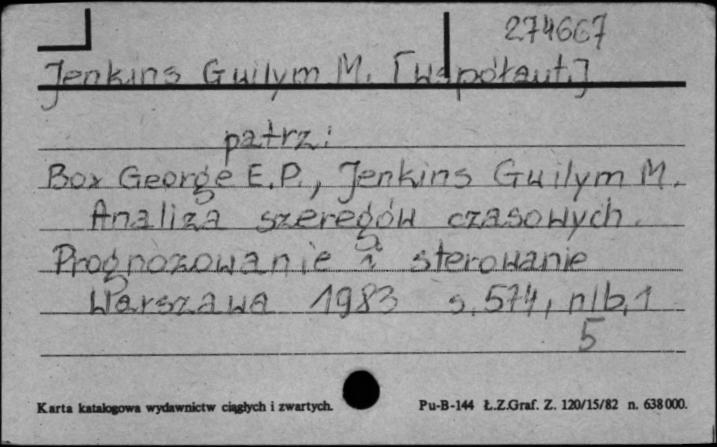 274667
Jenkins Gwilym M. [współaut.]
patrz:
Box George E.P., Jenkins Gwilym M.
Analiza szeregów czasowych.
Prognozowanie i sterowanie
Warszawa 1983 s. 574, nlb, 1
5
Karta katalogowa wydawnictw ciągłych i zwartych. Pu-B-144 Ł.Z.Graf. Z. 120/15/82 n. 638 000.